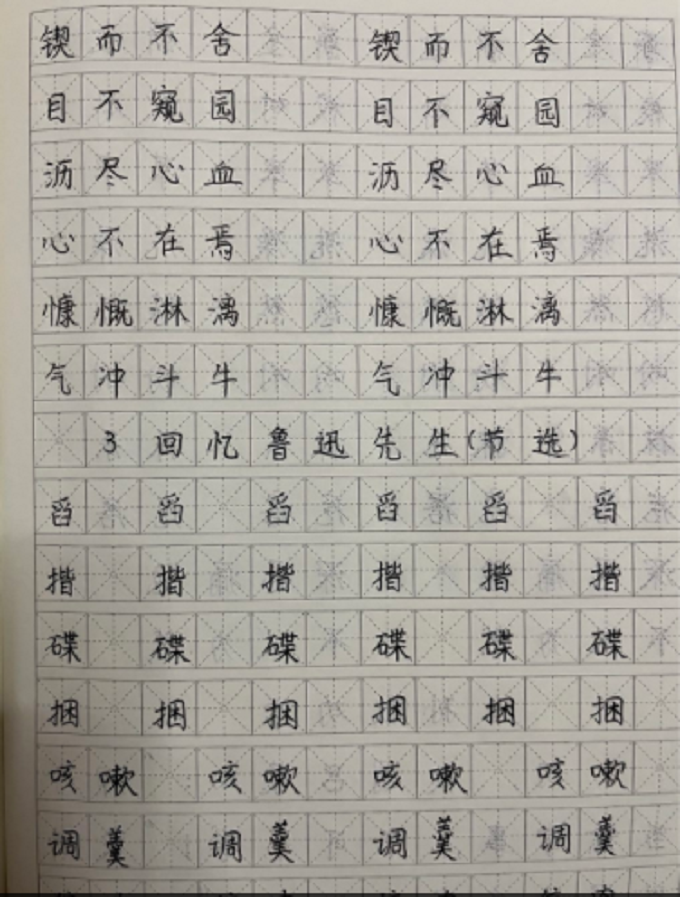 锲而不舍 锲而不舍
目不窥园 目不窥园
沥尽心血 沥尽心血
心不在焉 心不在焉
慷慨淋漓 慷慨淋漓
气冲斗牛 气冲斗牛
3 回忆鲁迅先生(节选)
舀 舀 舀 舀 舀 舀
揩 揩 揩 揩 揩 揩
碟 碟 碟 碟 碟 碟
捆 捆 捆 捆 捆 捆
咳嗽 咳嗽 咳嗽 咳嗽
调羹 调羹 调羹 调羹